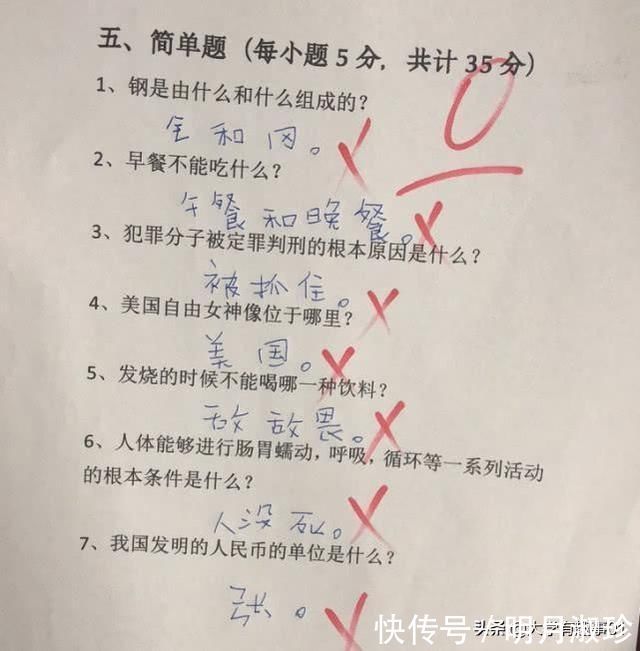 五、简单题（每小题 5 分，共计 35 分）
0
1、钢是由什么和什么组成的？
全和冈。
2、早餐不能吃什么？
午餐和晚餐。
3、犯罪分子被定罪判刑的根本原因是什么？
被抓住。
4、美国自由女神像位于哪里？
美国。
5、发烧的时候不能喝哪一种饮料？
敌敌畏。
6、人体能够进行肠胃蠕动，呼吸，循环等一系列活动
的根本条件是什么？
人没死。
7、我国发明的人民币的单位是什么？
张。
快传号/明月淑珍